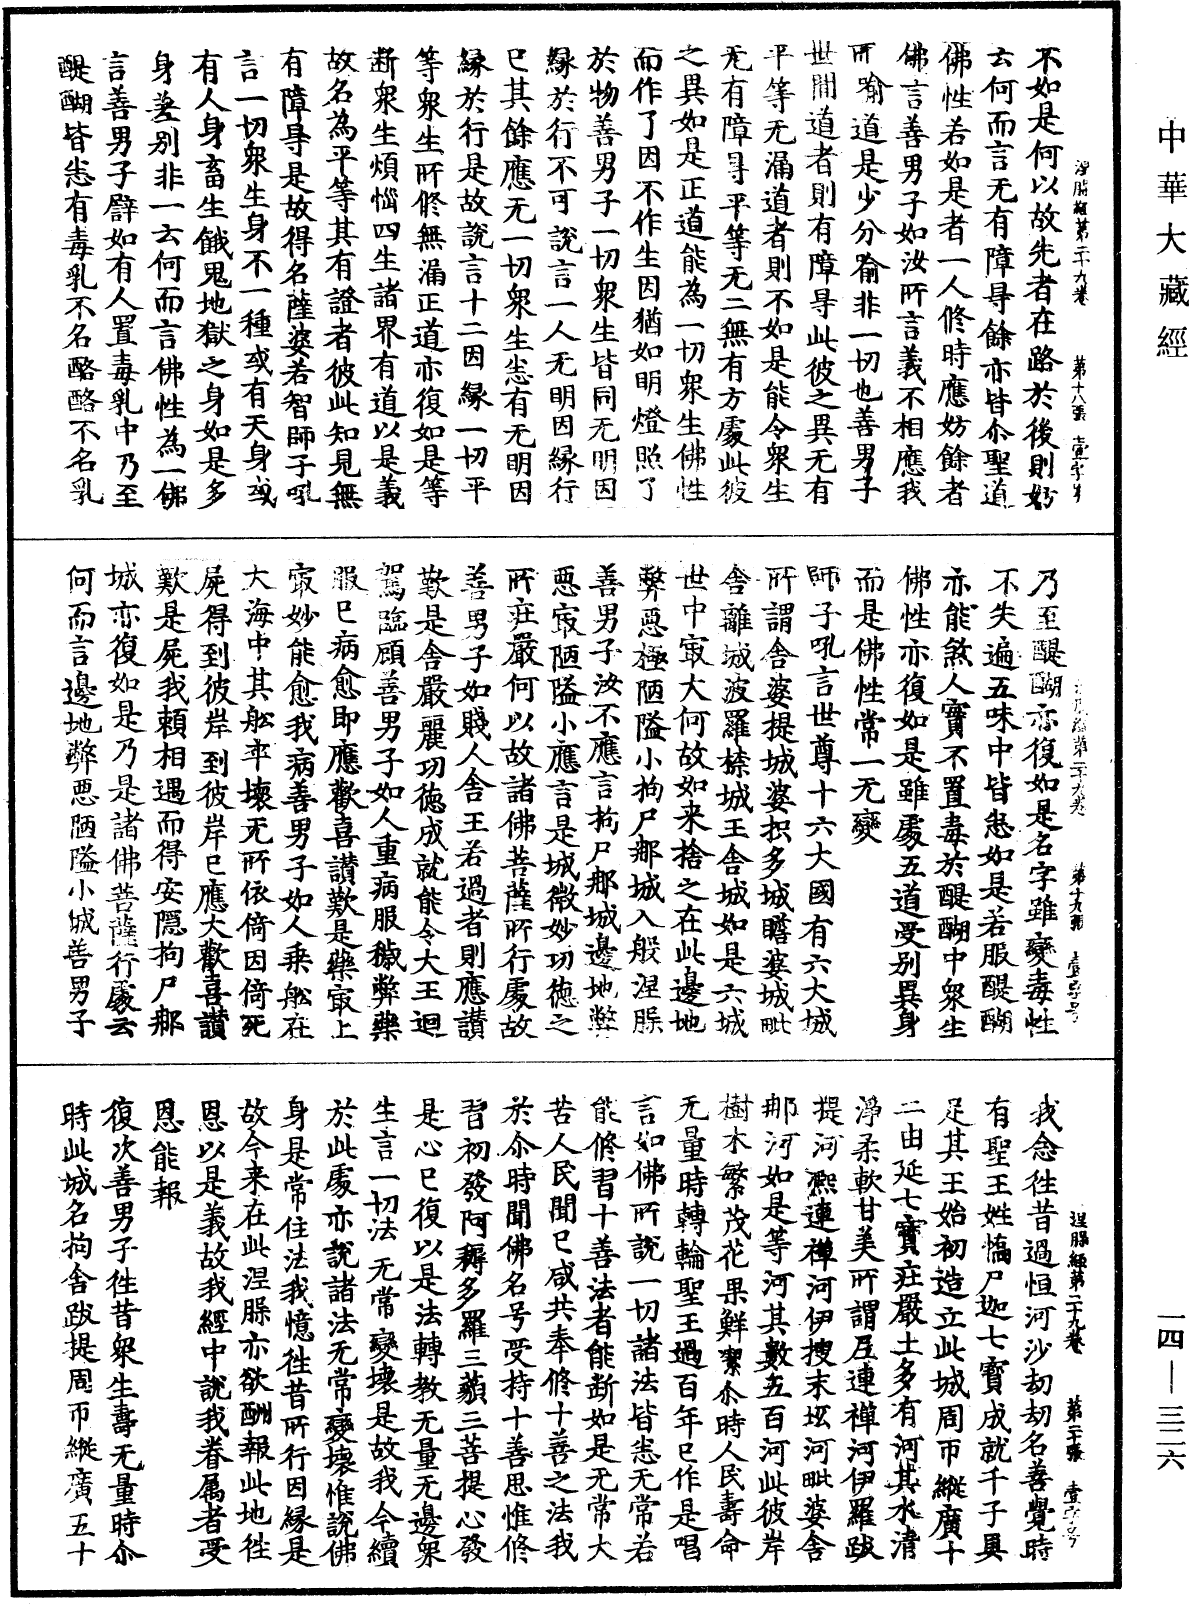 中華大藏經
一四—三二六
涅槃經第二十九卷 第十八張 壹字号
不如是何以故先者在路於後則妨
云何而言无有障㝵餘亦皆尒聖道
佛性若如是者一人修時應妨餘者
佛言善男子如汝所言義不相應我
所喻道是少分喻非一切也善男子
世間道者則有障㝵此彼之異无有
平等无漏道者則不如是能令眾生
无有障㝵平等无二無有方處此彼
之異如是正道能為一切眾生佛性
而作了因不作生因猶如明燈照了
於物善男子一切眾生皆同无明因
緣於行不可說言一人无明因緣行
已其餘應无一切眾生悉有无明因
緣於行是故說言十二因緣一切平
等眾生所修無漏正道亦復如是等
斷眾生煩惱四生諸界有道以是義
故名為平等其有證者彼此知見無
有障㝵是故得名薩婆若智師子吼
言一切眾生身不一種或有天身或
有人身畜生餓鬼地獄之身如是多
身差別非一云何而言佛性為一佛
言善男子譬如有人置毒乳中乃至
醍醐皆悉有毒乳不名酪酪不名乳
涅槃經第二十九卷 第十九張 壹字号
乃至醍醐亦復如是名字雖變毒性
不失遍五味中皆悉如是若服醍醐
亦能煞人實不置毒於醍醐中眾生
佛性亦復如是雖處五道受別異身
而是佛性常一无變
師子吼言世尊十六大國有六大城
所謂舍婆提城婆抧多城瞻婆城毗
舍離城波羅㮈城王舍城如是六城
世中㝡大何故如来捨之在此邊地
弊惡極陋隘小拘尸那城入般涅槃
善男子汝不應言拘尸那城邊地弊
惡㝡陋隘小應言是城微妙功德之
所莊嚴何以故諸佛菩薩所行處故
善男子如賤人舍王若過者則應讚
歎是舍嚴麗功德成就能令大王迴
駕臨顧善男子如人重病服穢弊藥
服已病愈即應歡喜讚歎是藥㝡上
㝡妙能愈我病善男子如人乘舩在
大海中其舩卒壞无所依倚因倚死
屍得到彼岸到彼岸已應大歡喜讚
歎是屍我賴相遇而得安隱拘尸那
城亦復如是乃是諸佛菩薩行處云
何而言邊地弊惡陋隘小城善男子
涅槃經第二十九卷 第二十張 壹字号
我念往昔過恒河沙劫劫名善覺時
有聖王姓憍尸迦七寶成就千子具
足其王始初造立此城周帀縱廣十
二由延七寶莊嚴土多有河其水清
淨柔軟甘美所謂尼連禪河伊羅跋
提河熈連禪河伊搜末坻河毗婆舍
那河如是等河其數五百河此彼岸
樹木繁茂花果鮮絜尒時人民壽命
无量時轉輪聖王過百年已作是唱
言如佛所說一切諸法皆悉无常若
能修習十善法者能斷如是无常大
苦人民聞已咸共奉修十善之法我
於尒時聞佛名号受持十善思惟修
習初發阿耨多羅三藐三菩提心發
是心已復以是法轉教无量无邊眾
生言一切法无常變壞是故我今續
於此處亦說諸法无常變壞惟說佛
身是常住法我憶往昔所行因緣是
故今来在此涅槃亦欲酬報此地往
恩以是義故我經中說我眷属者受
恩能報
復次善男子往昔眾生壽无量時尒
時此城名拘舍跋提周帀縱廣五十